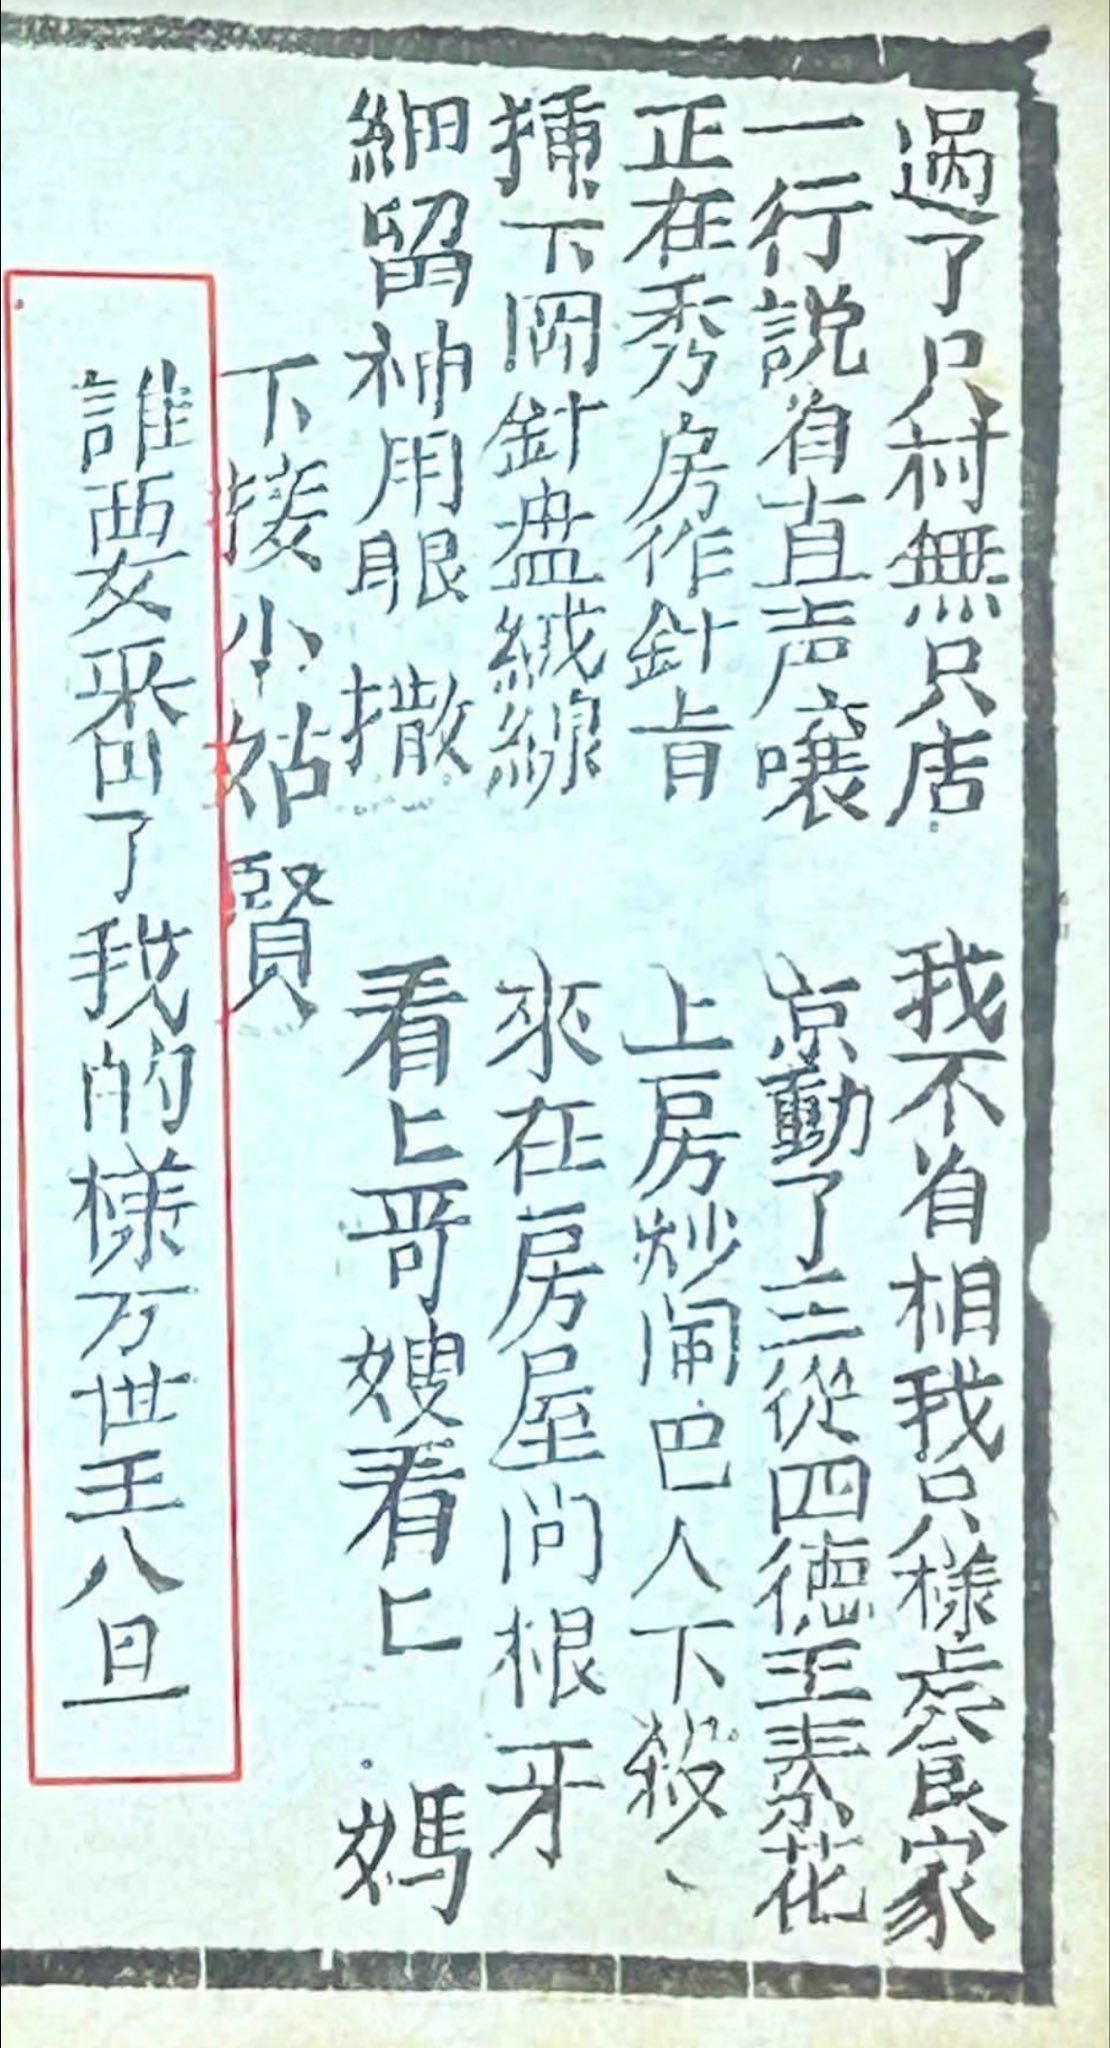 過了只村無只店 我不省相我只樣虑食家
一行説省直声嚷 京動了三從四德王素花
正在秀房作針肯 上房炒闹巴人下殺
揰下罔針盘絨線 來在房屋问根牙
細留神用眼撒 看匕哥嫂看匕媽
下接小姑賢
誰要采吅了我的樣万世王八旦